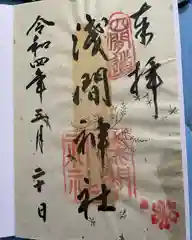 奉拝
淺間神社
令和四年五月二十日